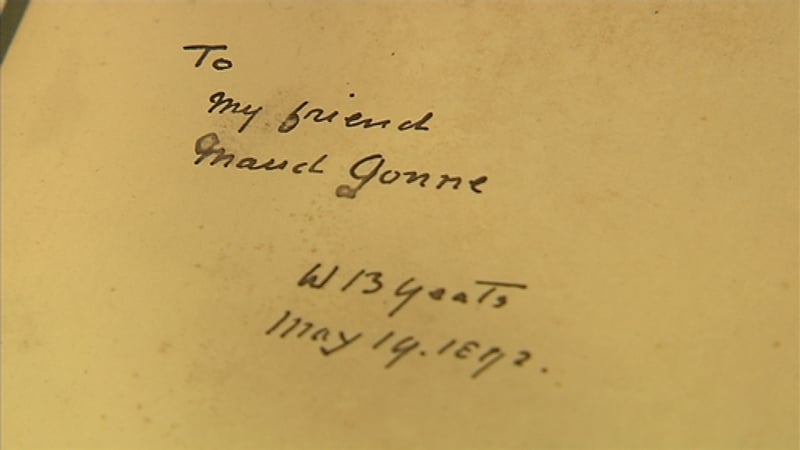 To
My friend
Maud Gonne
W B Yeats
May 19. 1892.